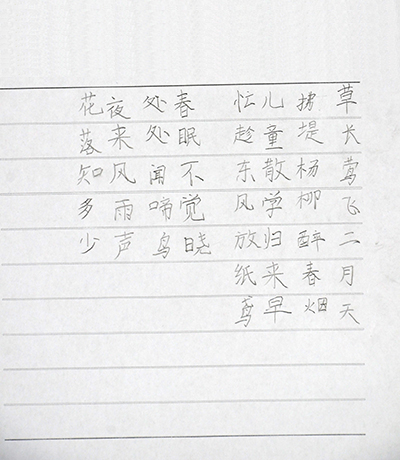 草长莺飞二月天
拂堤杨柳醉春烟
儿童散学归来早
忙趁东风放纸鸢
春眠不觉晓
处处闻啼鸟
夜来风雨声
花落知多少